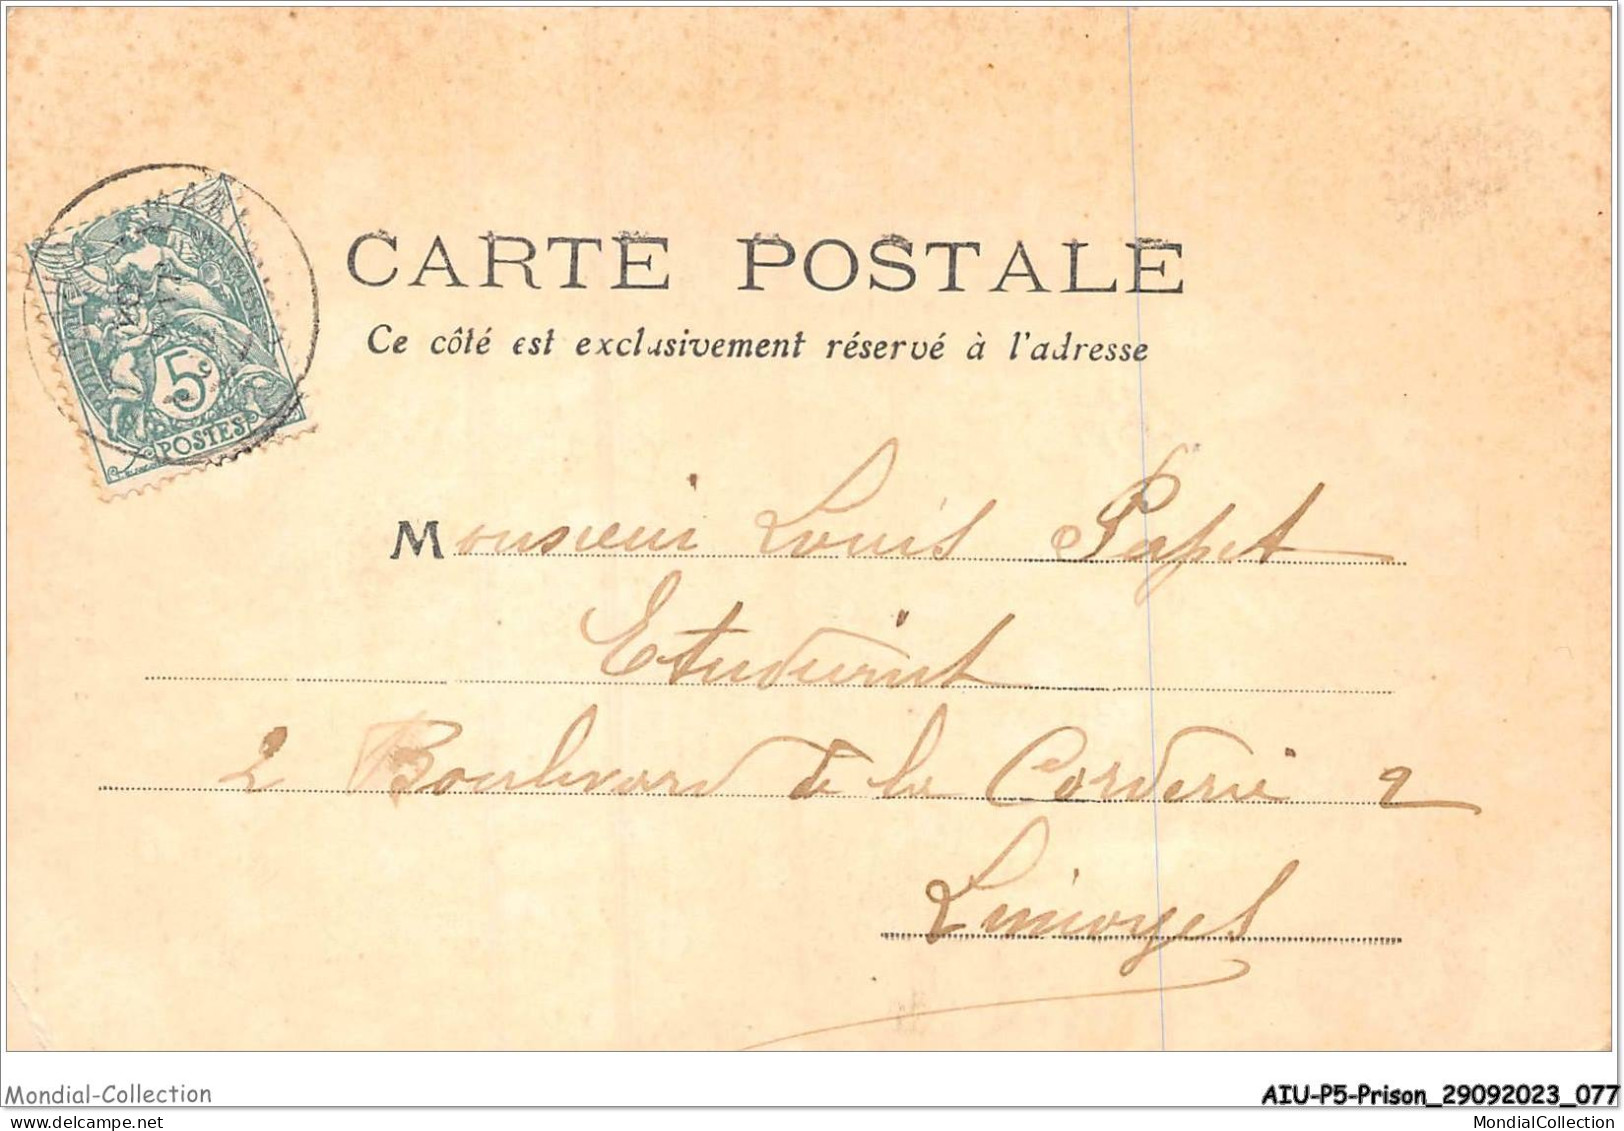 CARTE POSTALE
Ce côté est exclusivement réservé à l'adresse
5c
POSTES
Monsieur Louis Papet
Etudiant
2 Boulevard de la Corderie 2
Limoges
Mondial-Collection
AIU-P5-Prison_29092023_077
delcampe.net
MondialCollection